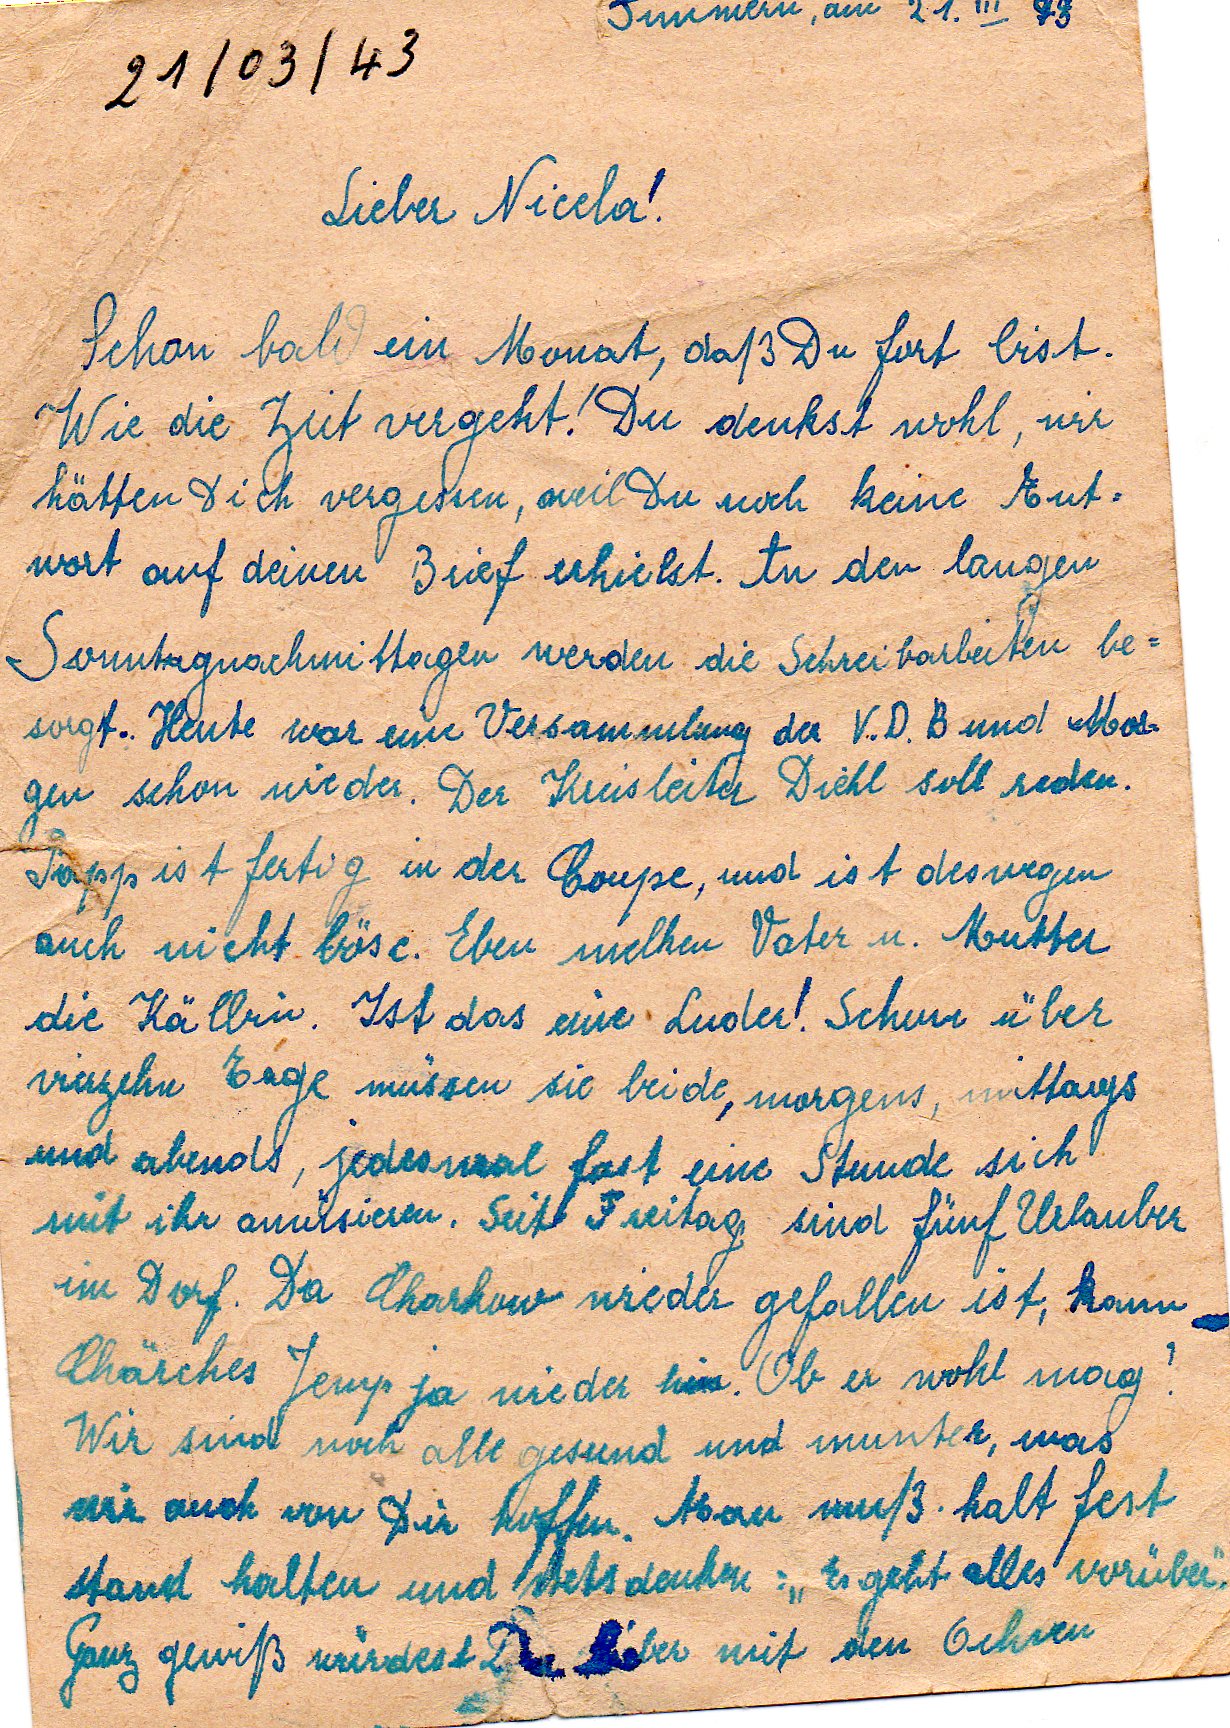 Immern, am 21. III 43
21/03/43
Lieber Nicela!
Schon bald ein Monat, daß Du fort bist.
Wie die Zeit vergeht! Du denkst wohl, wir
hätten Dich vergessen, weil Du noch keine Ant=
wort auf deinen Brief erhielst. An den langen
Sonntagnachmittagen werden die Schreibarbeiten be=
sorgt. Heute war eine Versammlung der V.D.B und Mor-
gen schon wieder. Der Kreisleiter Diehl soll reden.
Papp ist fertig in der Coupe, und ist deswegen
auch nicht böse. Eben melken Vater u. Mutter
die Kälbin. Ist das eine Luder! Schon über
vierzehn Tage müssen sie beide, morgens, mittags
und abends, jedesmal fast eine Stunde sich
mit ihr amüsieren. Seit Freitag sind fünf Urlauber
im Dorf. Da Charkow wieder gefallen ist, kann
Chärches Jemp ja wieder hin. Ob er wohl mag?
Wir sind noch alle gesund und munter, was
wir auch von Dir hoffen. Man muß halt fest
stand halten und stets denken: „Es geht alles vorüber".
Ganz gewiß würdest Du lieber mit den Ochsen